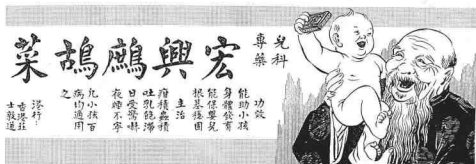 兒科
專藥
宏興鷓鴣菜
功效
能助小孩
身體發育
能保嬰兒
根基穩固
主治
疳積蟲積
吐乳飽滯
日受驚嚇
夜睡不寧
凡小孩百
病均適用
之
港行：
香港莊
士敦道